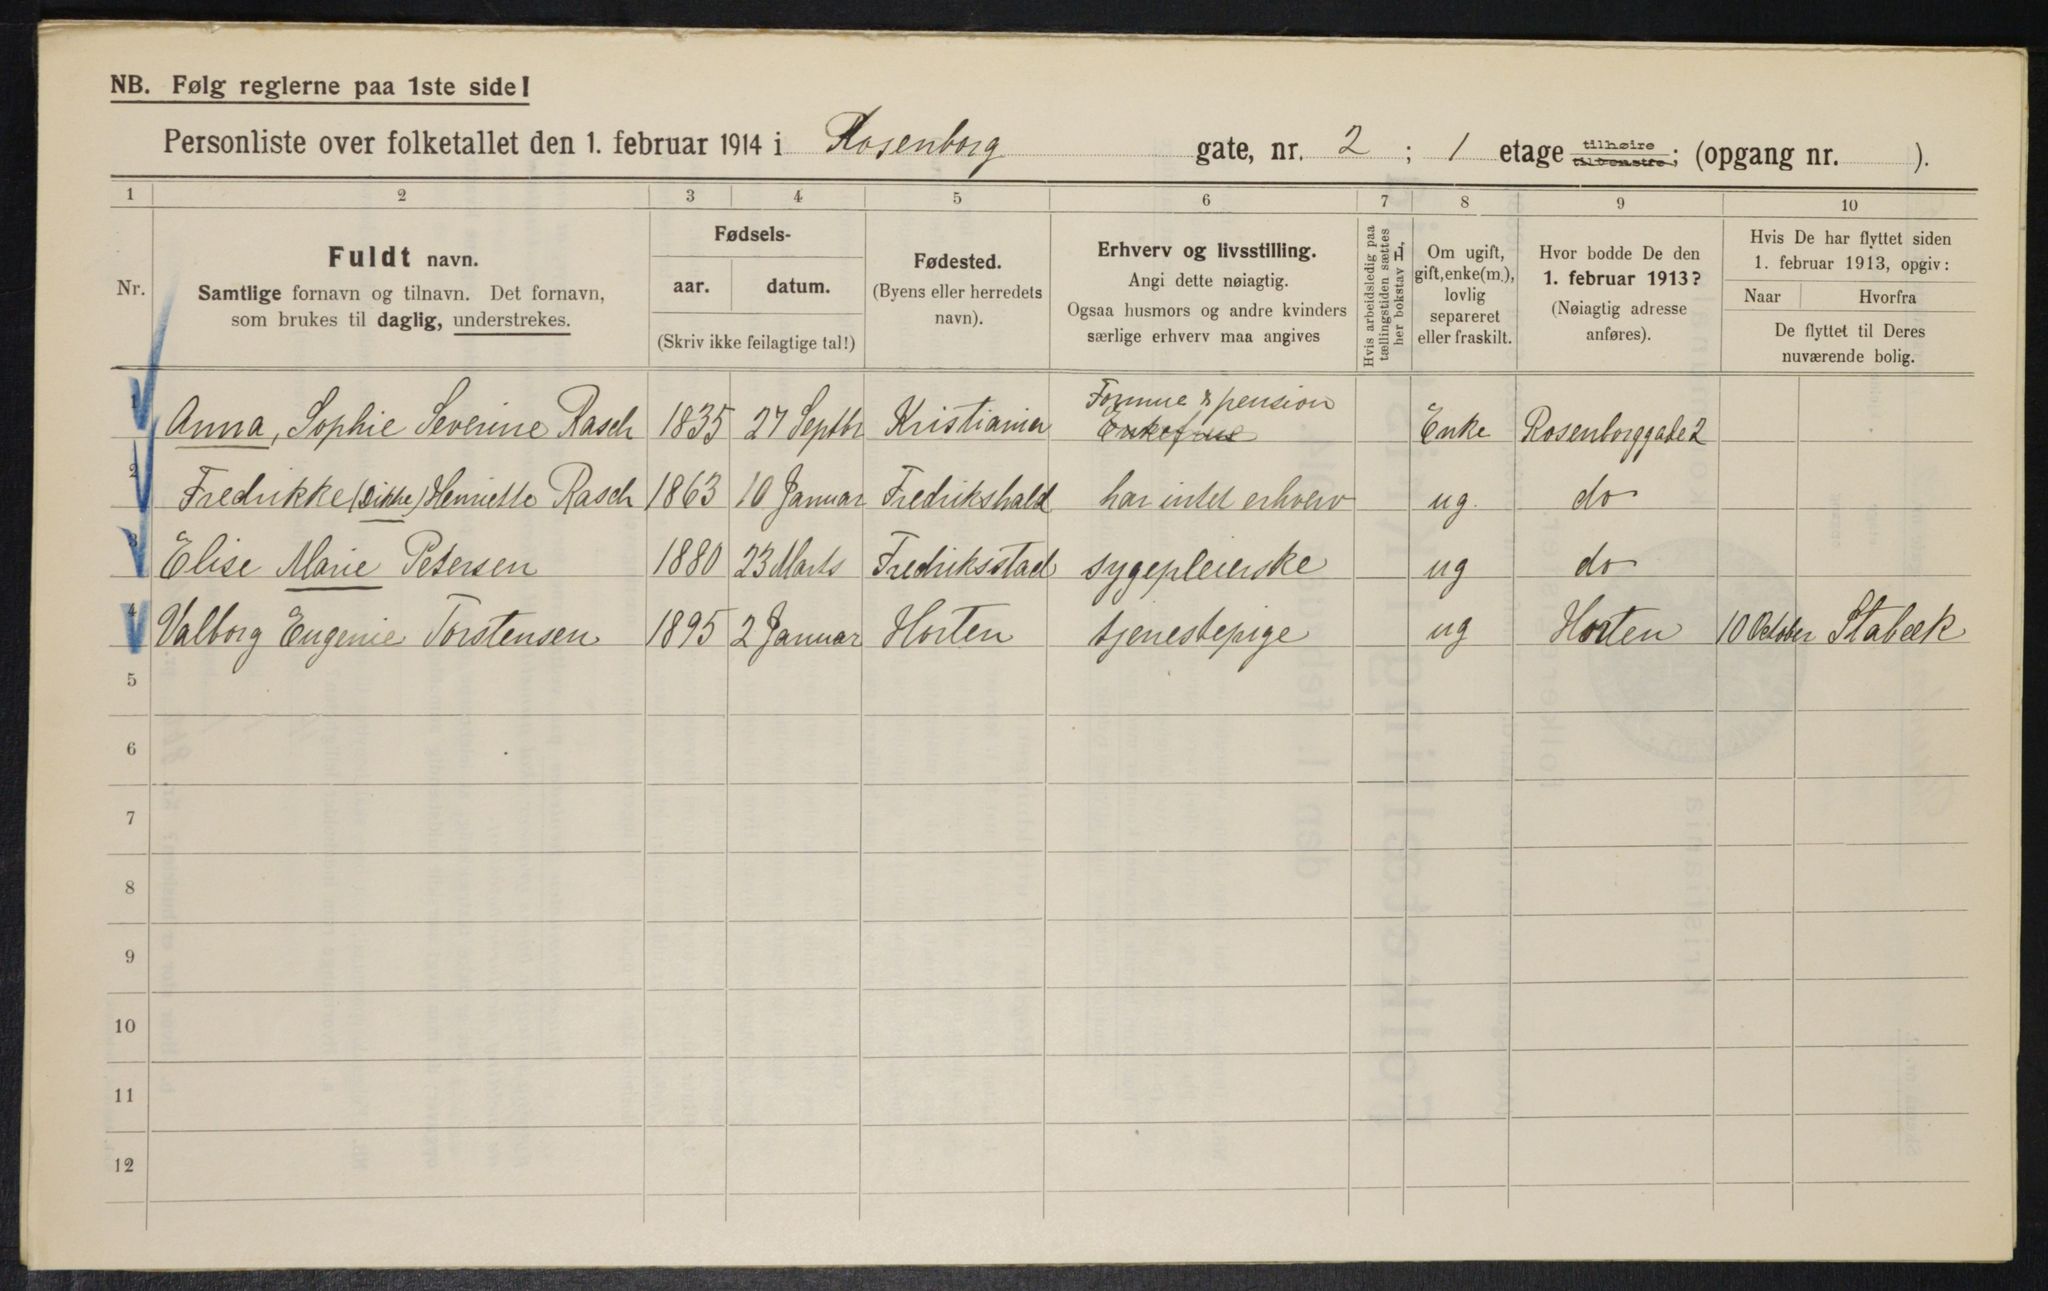 NB. Følg reglerne paa 1ste side!
Personliste over folketallet den 1. februar 1914 i Rosenborg gate, nr. 2 ; 1 etage tilhøire tilvenstre; (opgang nr. ).
1 2 3 4 5 6 7 8 9 10
Nr.
Fuldt navn.
Samtlige fornavn og tilnavn. Det fornavn,
som brukes til daglig, understrekes.
Fødsels-
aar. datum.
(Skriv ikke feilagtige tal!)
Fødested.
(Byens eller herredets
navn).
Erhverv og livsstilling.
Angi dette nøiagtig.
Ogsaa husmors og andre kvinders
særlige erhverv maa angives
Hvis arbeidsledig paa
tællingstiden sættes
her bokstav L,
Om ugift,
gift, enke(m.),
lovlig
separeret
eller fraskilt.
Hvor bodde De den
1. februar 1913?
(Nøiagtig adresse
anføres).
Hvis De har flyttet siden
1. februar 1913, opgiv:
Naar Hvorfra
De flyttet til Deres
nuværende bolig.
Formue & pension
1 Anna, Sophie Severine Rasch 1835 27 Septbr Kristiania Enkefrue Enke Rosenborggade 2
2 Fredrikke (Dikke) Henriette Rasch 1863 10 Januar Fredrikshald har intet erhverv ug. do
3 Elise Marie Petersen 1880 23 Marts Fredriksstad sygepleierske ug do
4 Valborg Eugenie Torstensen 1895 2 Januar Horten tjenestepige ug Horten 10 October Stabæk
5
6
7
8
9
10
11
12